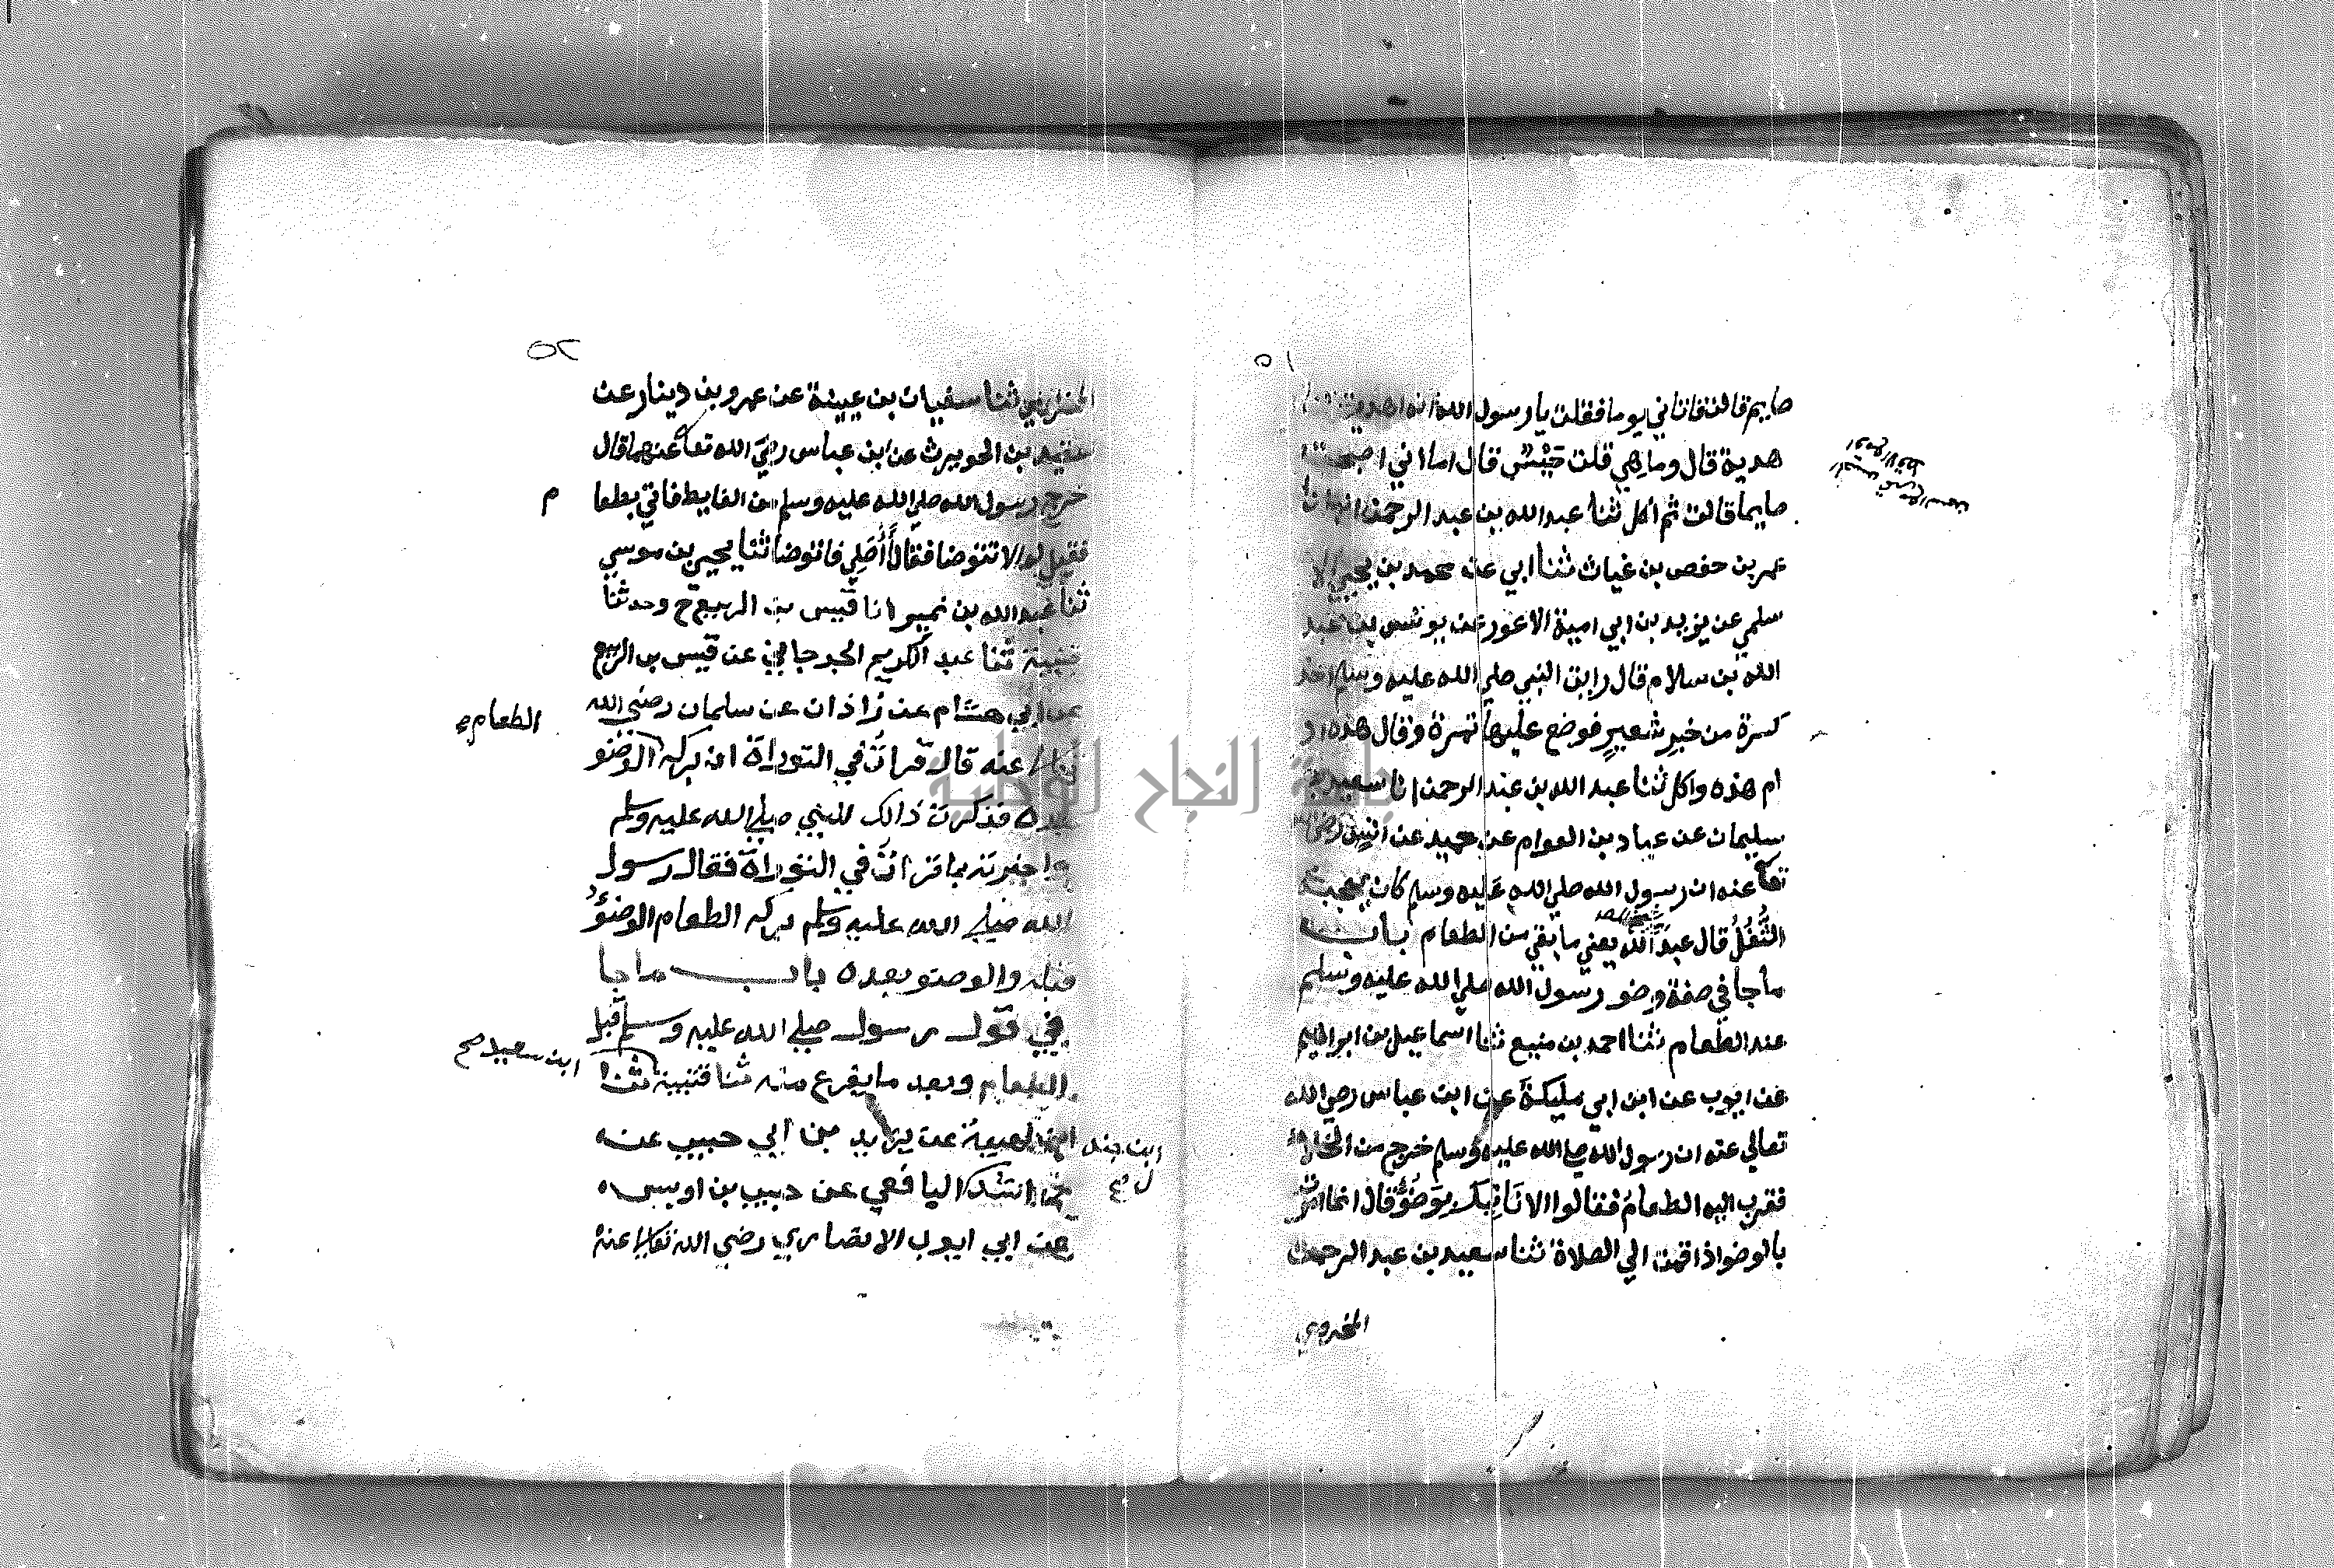 ٥١
صايم قالت فاتاني يوما فقلت يا رسول الله انه اهديت لنا
هدية قال وما هي قلت حيس قال اما اني اصبحت
صايما قالت ثم اكل ثنا عبد الله بن عبد الرحمن انا
عمر بن حفص بن غياث ثنا ابي عن محمد بن يحيي الا
سلمي عن يزيد بن ابي امية الاعور عن يوسف بن عبد
الله بن سلام قال رايت النبي صلي الله عليه وسلم اخذ
كسرة من خبز شعير فوضع عليها تمرة وقال هذه اد
ام هذه واكل ثنا عبد الله بن عبد الرحمن انا سعيد بن
سليمان عن عباد بن العوام عن حميد عن انس رضي
تعا عنه ان رسول الله صلي الله عليه وسلم كان يعجبه
الثفل قال عبد الله يعني ما بقي من الطعام باب
ما جا في صفة وضو رسول الله صلي الله عليه وسلم
عند الطعام ثنا احمد بن منيع ثنا اسماعيل بن ابراهيم
عن ايوب عن ابن ابي مليكة عن ابن عباس رضي الله
تعالي عنه ان رسول الله صلي الله عليه وسلم خرج من الخلاء
فقرب اليه الطعام فقالوا الا ناتيك بوضوء قال انما امرت
بالوضو اذا قمت الي الصلاة ثنا سعيد بن عبد الرحمن
المخزومي
٥٢
المخزومي ثنا سفيان بن عيينة عن عمرو بن دينار عن
سعيد بن الحويرث عن ابن عباس رضي الله تعا عنهما قال
خرج رسول الله صلي الله عليه وسلم من الغايط فاتي بطعا م
فقيل له الا تتوضا فقال أأصلي فاتوضا ثنا يحيي بن موسي
ثنا عبد الله بن نمير انا قيس بن الربيع ح وحدثنا
قتيبة ثنا عبد الكريم الجرجاني عن قيس بن الربيع
عن ابي هشام عن زاذان عن سلمان رضي الله
تعالي عنه قال قرات في التوراة ان بركة الوضو
الطعام
بعده فذكرت ذالك للنبي صلي الله عليه وسلم
واخبرته بما قرات في التوراة فقال رسول
الله صلي الله عليه وسلم بركة الطعام الوضوء
قبله والوضو بعده باب ما جا
في قول رسول صلي الله عليه وسلم قبل
الطعام وبعد ما يفرغ منه ثنا قتيبة ثنا
ابن سعيد صح
ابن لهيعة عن يزيد بن ابي حبيب عن
ابن جند
ل صح
راشد اليافعي عن حبيب بن اوس
عن ابي ايوب الانصاري رضي الله تعالي عنه
جامعة النجاح الوطنية